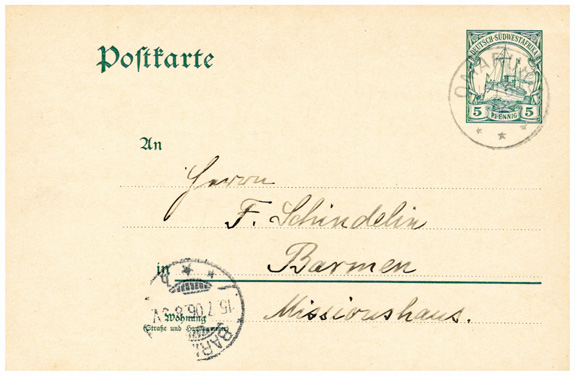 DEUTSCH-SÜDWESTAFRIKA
Postkarte
5 PFENNIG 5
An
Herrn
F. Schindelin
in Barmen
Missionshaus.
Wohnung
(Straße und Hausnummer)
15.7.06.8-9V
BARM